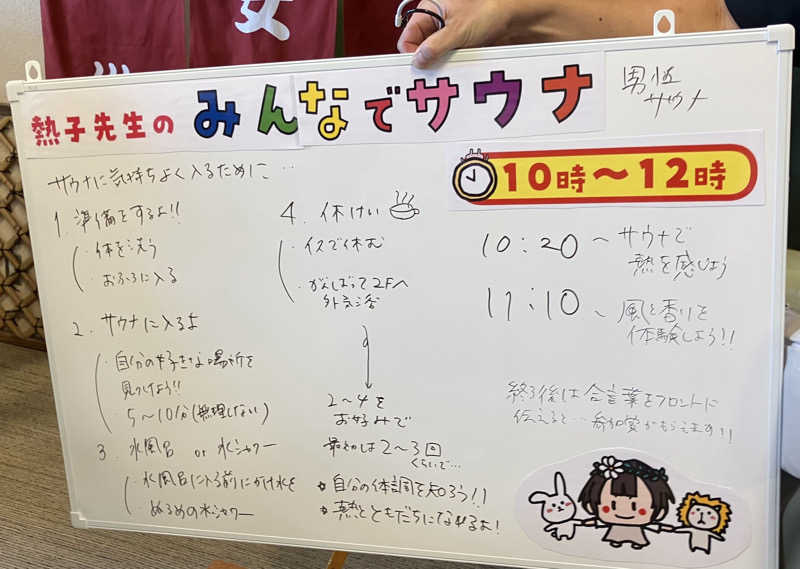 女
熱子先生の みんなでサウナ
男性
サウナ
10時～12時
サウナに気持ちよく入るために…
1. 準備をするよ!!
・体を洗う
・おふろに入る
2. サウナに入るよ
・自分の好きな場所を
見つけよう!!
・5～10分(無理しない)
3. 水風呂 or 水シャワー
・水風呂に入る前にかけ水を
・ぬるめの水シャワー
4. 休けい
・イスで休む
・がんばって2Fへ
外気浴
2～4を
お好みで
最初は2～3回
くらいで…
自分の体調を知ろう!!
熱とともだちになれるよ!
10:20～サウナで
熱を感じよう
11:10～風と香りを
体験しよう!!
終了後は合言葉をフロントに
伝えると…参加賞がもらえます!!